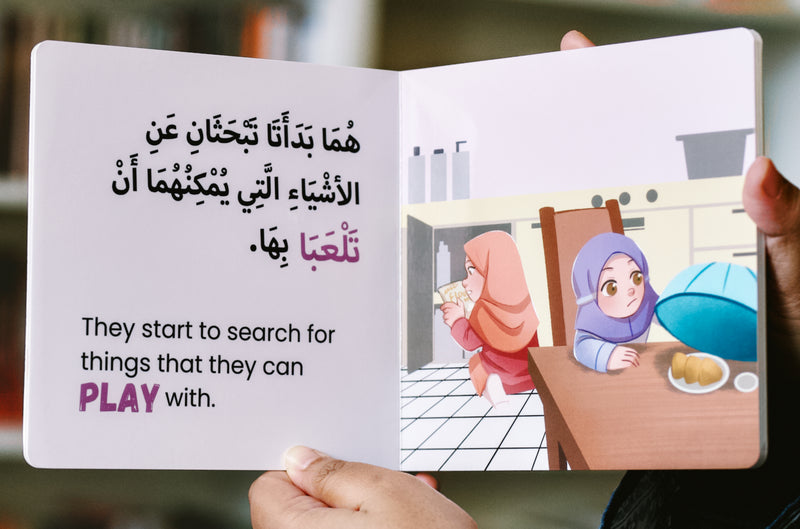 هُمَا بَدَأَتَا تَبْحَثَانِ عَنِ
الأشْيَاءِ الَّتِي يُمْكِنُهُمَا أَنْ
تَلْعَبَا بِهَا.
They start to search for
things that they can
PLAY with.